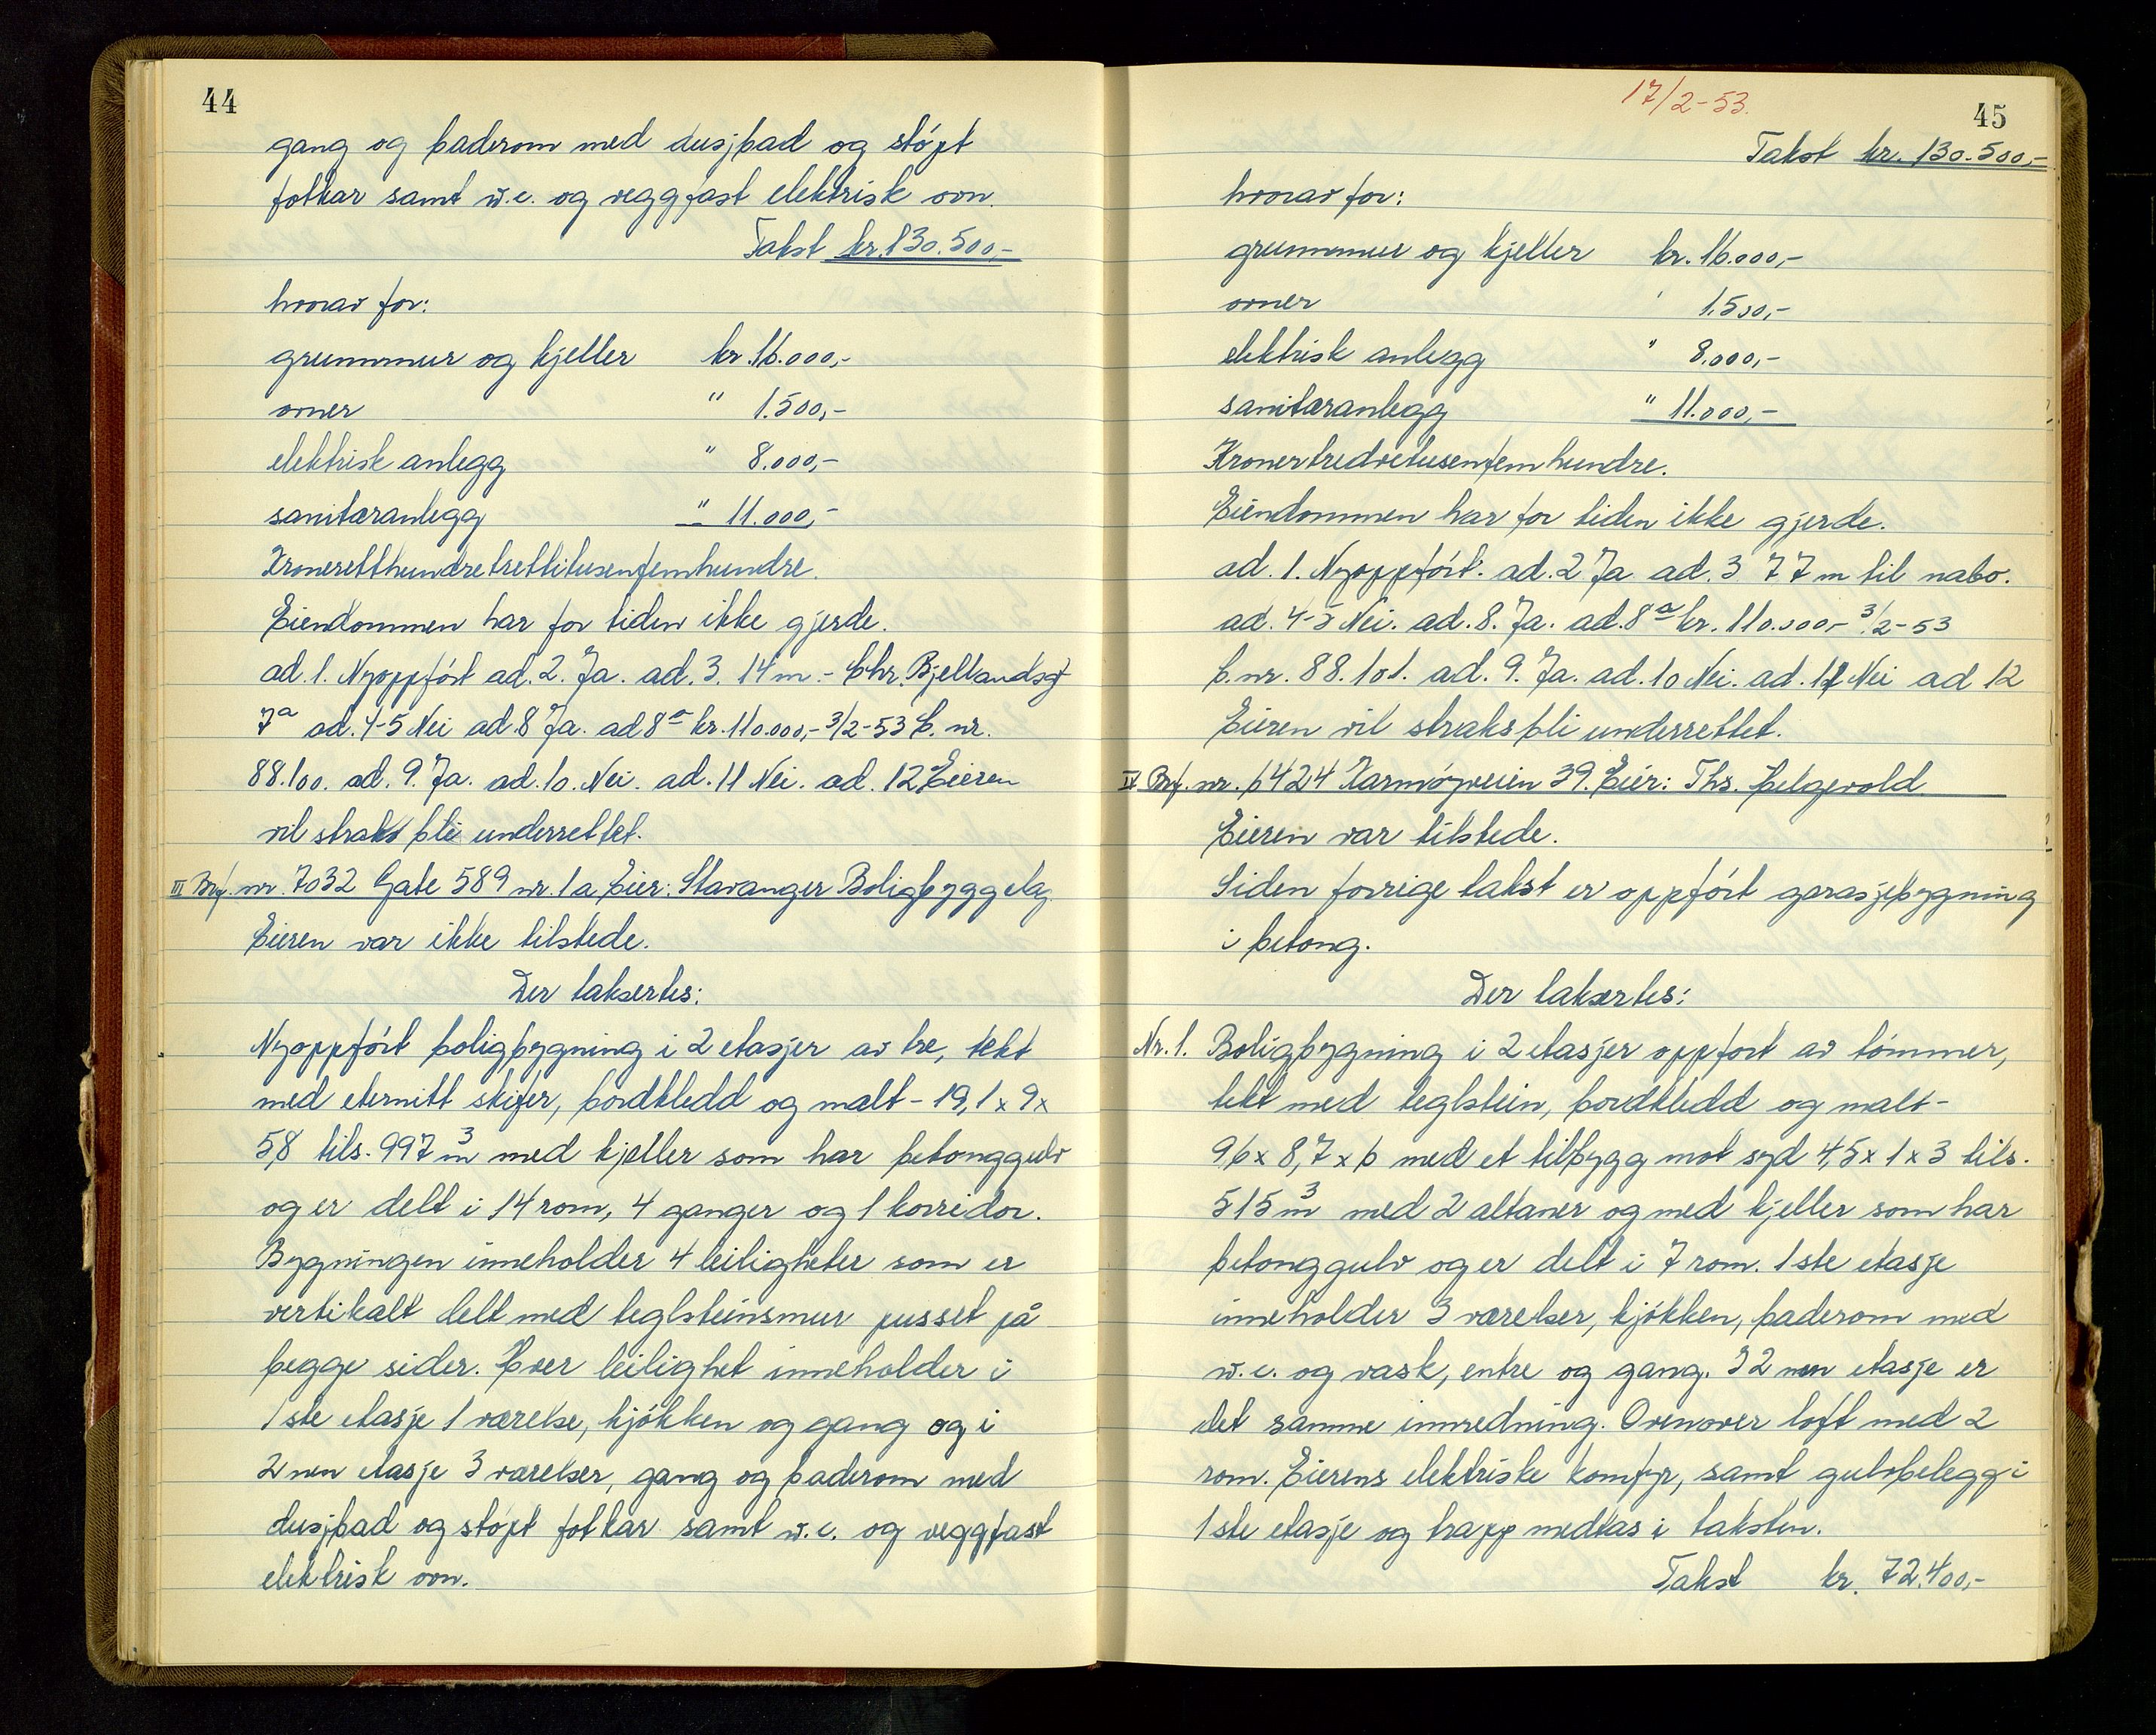 44
gang og baderom med dusjbad og støpt
fotkar samt w.c. og veggfast elektrisk ovn.
Takst kr. 130.500,-
hvorav for:
grunnmur og kjeller kr. 16.000,-
ovner " 1.500,-
elektrisk anlegg " 8.000,-
sanitæranlegg " 11.000,-
Kroneretthundretrettitusenfemhundre.
Eiendommen har for tiden ikke gjerde.
ad. 1. Nyoppført ad. 2. Ja. ad. 3. 14 m. - Chr. Bjellandsgt
7a ad. 4-5 Nei ad. 8 Ja. ad 8a kr. 110.000,- 3/2-53 B. nr.
88.100. ad. 9. Ja. ad. 10. Nei. ad. 11 Nei. ad. 12 Eieren
vil straks bli underrettet.
III Brf. nr. 7032 Gate 589 nr. 1a Eier: Stavanger Boligbyggelag
Eieren var ikke tilstede.
Der taksertes:
Nyoppført boligbygning i 2 etasjer av tre, tekt
med eternitt skifer, bordkledd og malt - 19,1 x 9 x
5,8 tils. 997 m3 med kjeller som har betonggulv
og er delt i 14 rom, 4 ganger og 1 korridor.
Bygningen inneholder 4 leiligheter som er
vertikalt delt med teglsteinsmur pusset på
begge sider. Hver leilighet inneholder i
1ste etasje 1 værelse, kjøkken og gang og i
2nen etasje 3 værelser, gang og baderom med
dusjbad og støpt fotkar samt w.c. og veggfast
elektrisk ovn.
17/2-53.
45
Takst kr. 130.500,-
hvorav for:
grunnmur og kjeller kr. 16.000,-
ovner " 1.500,-
elektrisk anlegg " 8.000,-
sanitæranlegg " 11.000,-
Eiendommen har for tiden ikke gjerde.
ad. 1. Nyoppført. ad. 2 Ja ad. 3 77 m til nabo.
ad. 4-5 Nei. ad. 8. Ja. ad. 8a kr. 110.000,- 3/2-53
B. nr. 88.101. ad. 9. Ja. ad. 10 Nei. ad. 11 Nei ad 12
Eieren vil straks bli underrettet.
IV Brf. nr. 6424 Karmøyveien 39. Eier: Ths. Helgevold
Eieren var tilstede.
Siden forrige takst er oppført garasjebygning
i betong.
Der taksertes:
Nr. 1. Boligbygning i 2 etasjer oppført av tømmer,
tekt med teglstein, bordkledd og malt -
9,6 x 8,7 x 6 med et tilbygg mot syd 4,5 x 1 x 3 tils.
515 m3 med 2 altaner og med kjeller som har
betonggulv og er delt i 7 rom. 1ste etasje
inneholder 3 værelser, kjøkken, baderom med
w.c. og vask, entre og gang. I 2nen etasje er
det samme innredning. Ovenover loft med 2
rom. Eierens elektriske komfyr, samt gulvbelegg i
1ste etasje og trapp medtas i taksten.
Takst kr. 72.400,-